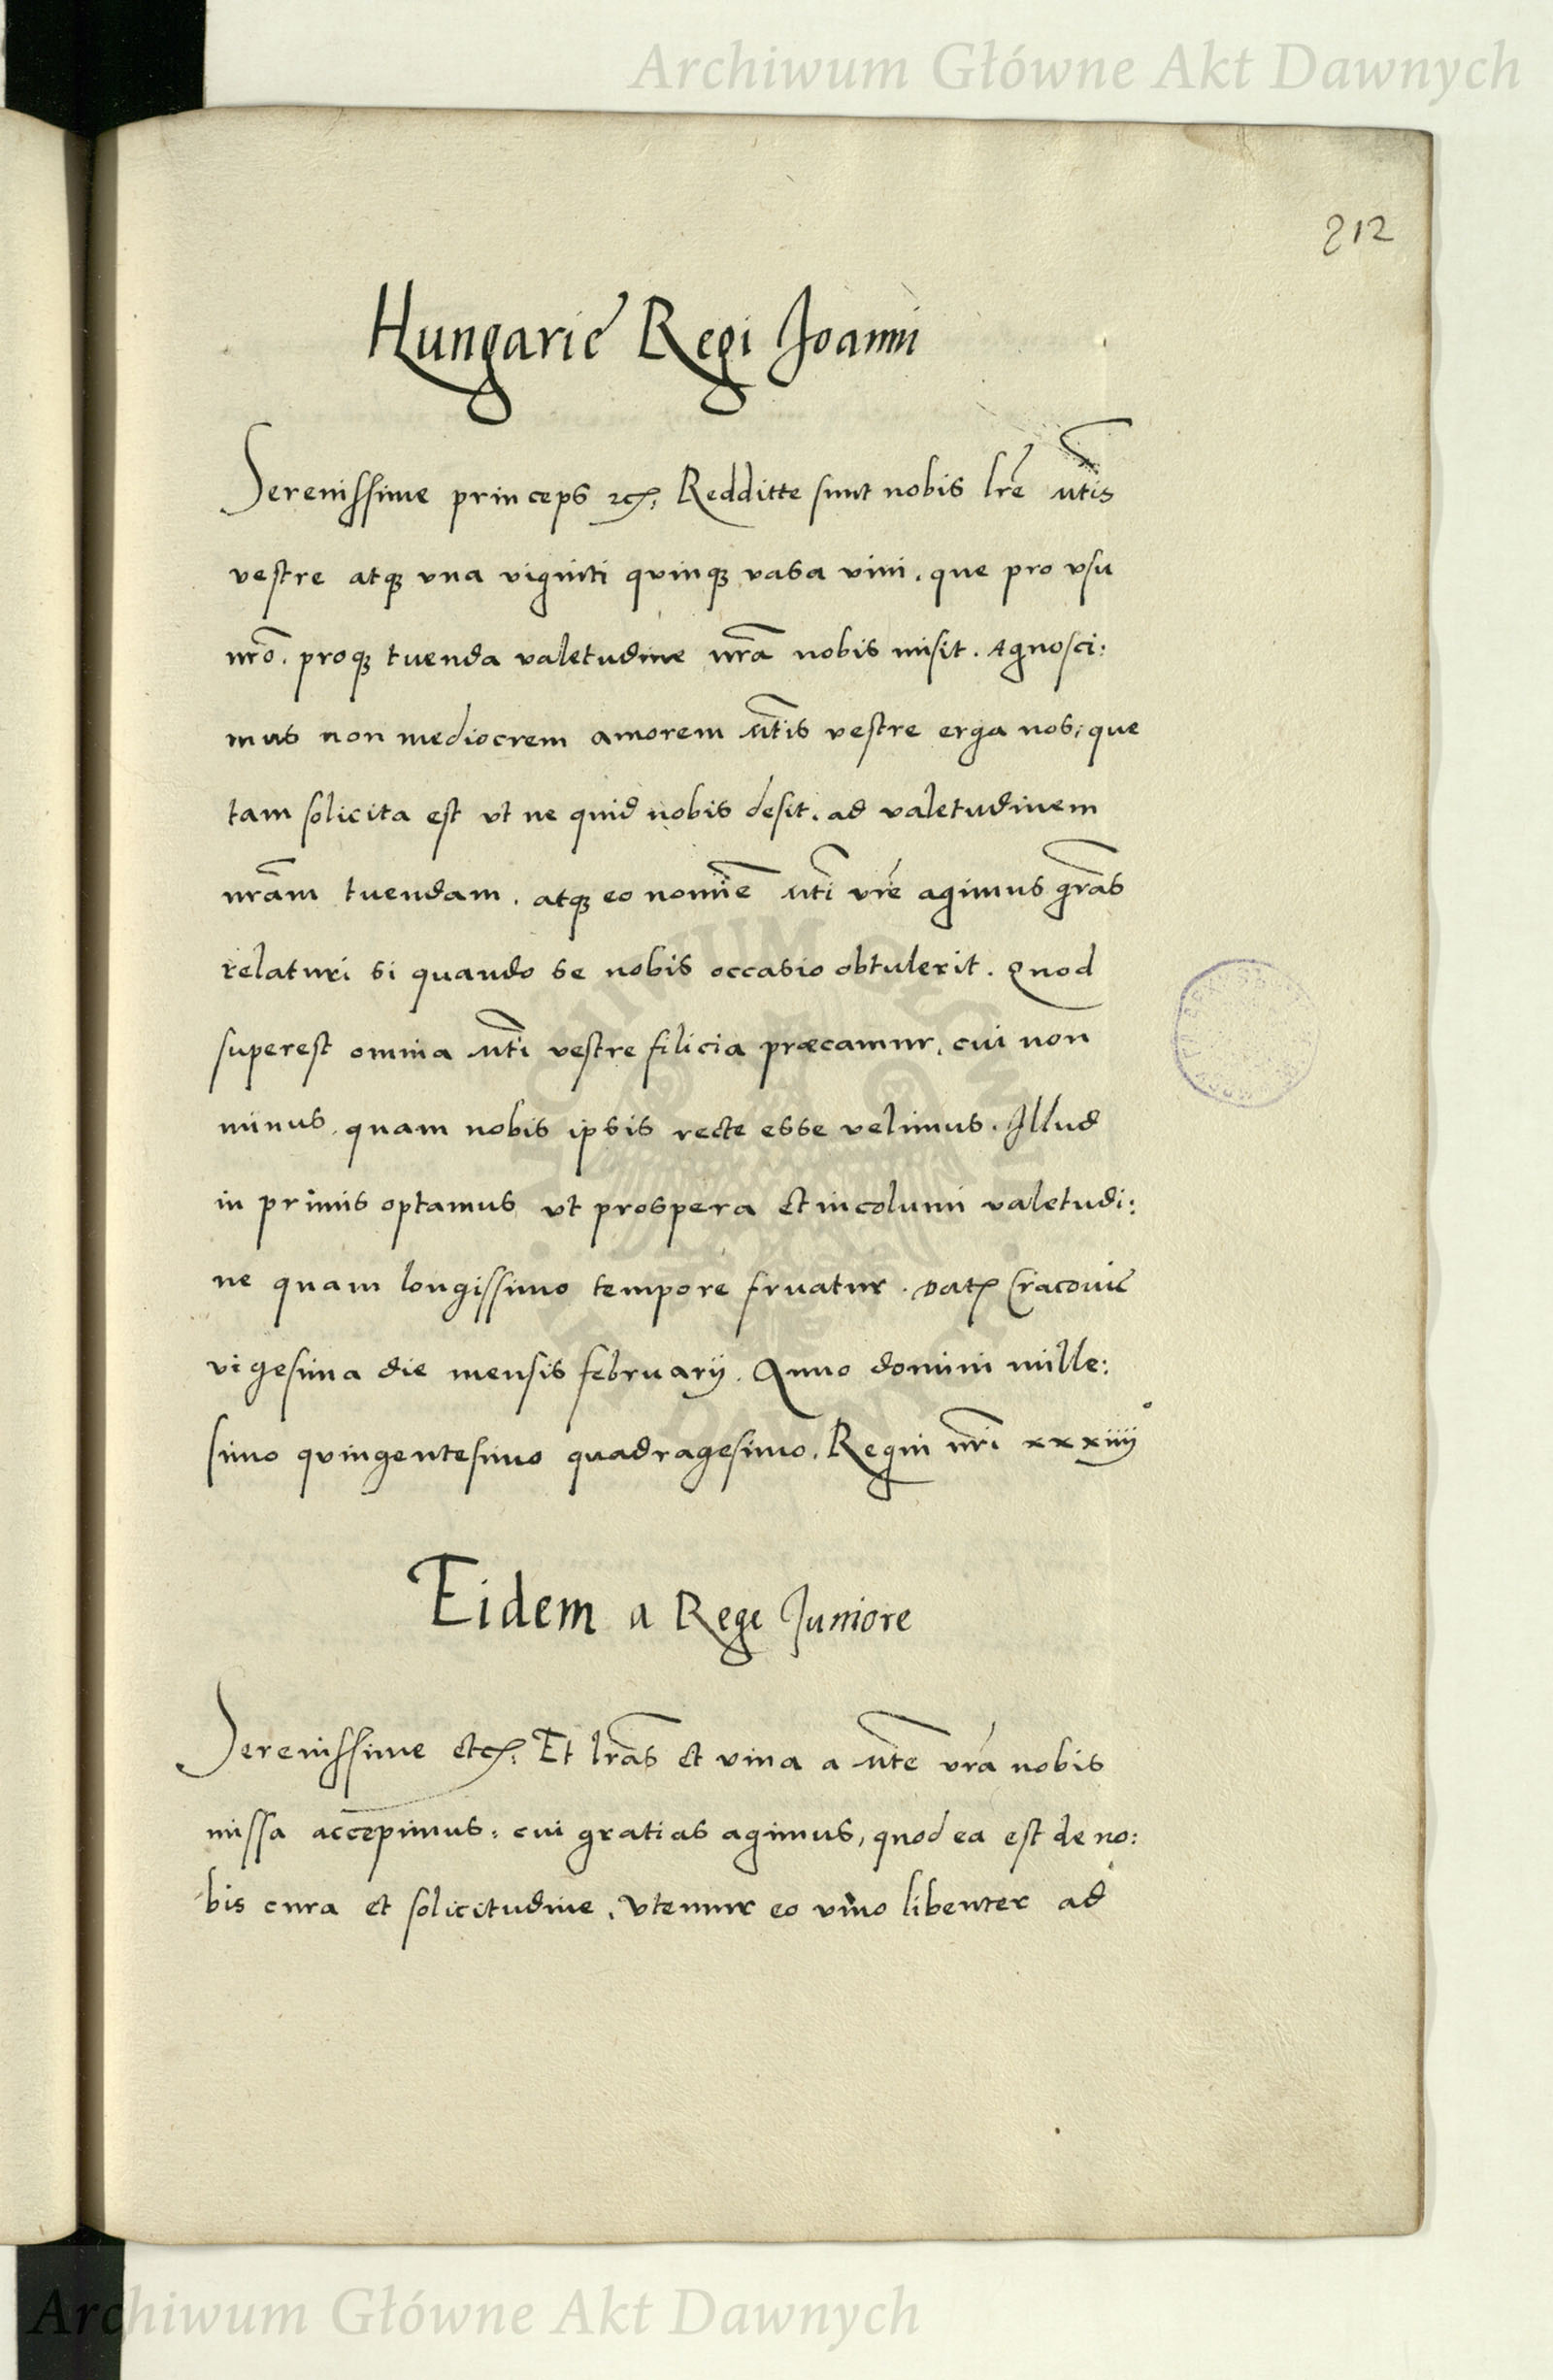 Archiwum Główne Akt Dawnych
212
Hungarie Regi Joanni
Serenissime princeps etc. Redditte sunt nobis lrē Mtis
vestre atq; vna viginti quinq; vasa vini, que pro vsu
nrō. proq; tuenda valetudine nrā nobis misit. Agnosci:
mus non mediocrem amorem Mtis vestre erga nos, que
tam solicita est vt ne quid nobis desit. ad valetudinem
nrām tuendam. atq; eo nomīe Mti vrē agimus grās
relaturi si quando se nobis occasio obtulerit. Quod
superest omnia Mti vestre filicia præcamur, cui non
minus quam nobis ipsis recte esse velimus. Illud
in primis optamus vt prospera et incolumi valetudi:
ne quam longissimo tempore fruatur. Dat Cracovie
vigesima die mensis februarij. Anno domini mille:
simo quingentesimo quadragesimo. Regni nrī xxxiiij°
Eidem a Rege Juniore
Serenissime etc. Et lrās et vina a Mte vrā nobis
missa accepimus: cui gratias agimus, quod ea est de no:
bis cura et solicitudine. Vtemur eo vino libenter ad
Archiwum Główne Akt Dawnych